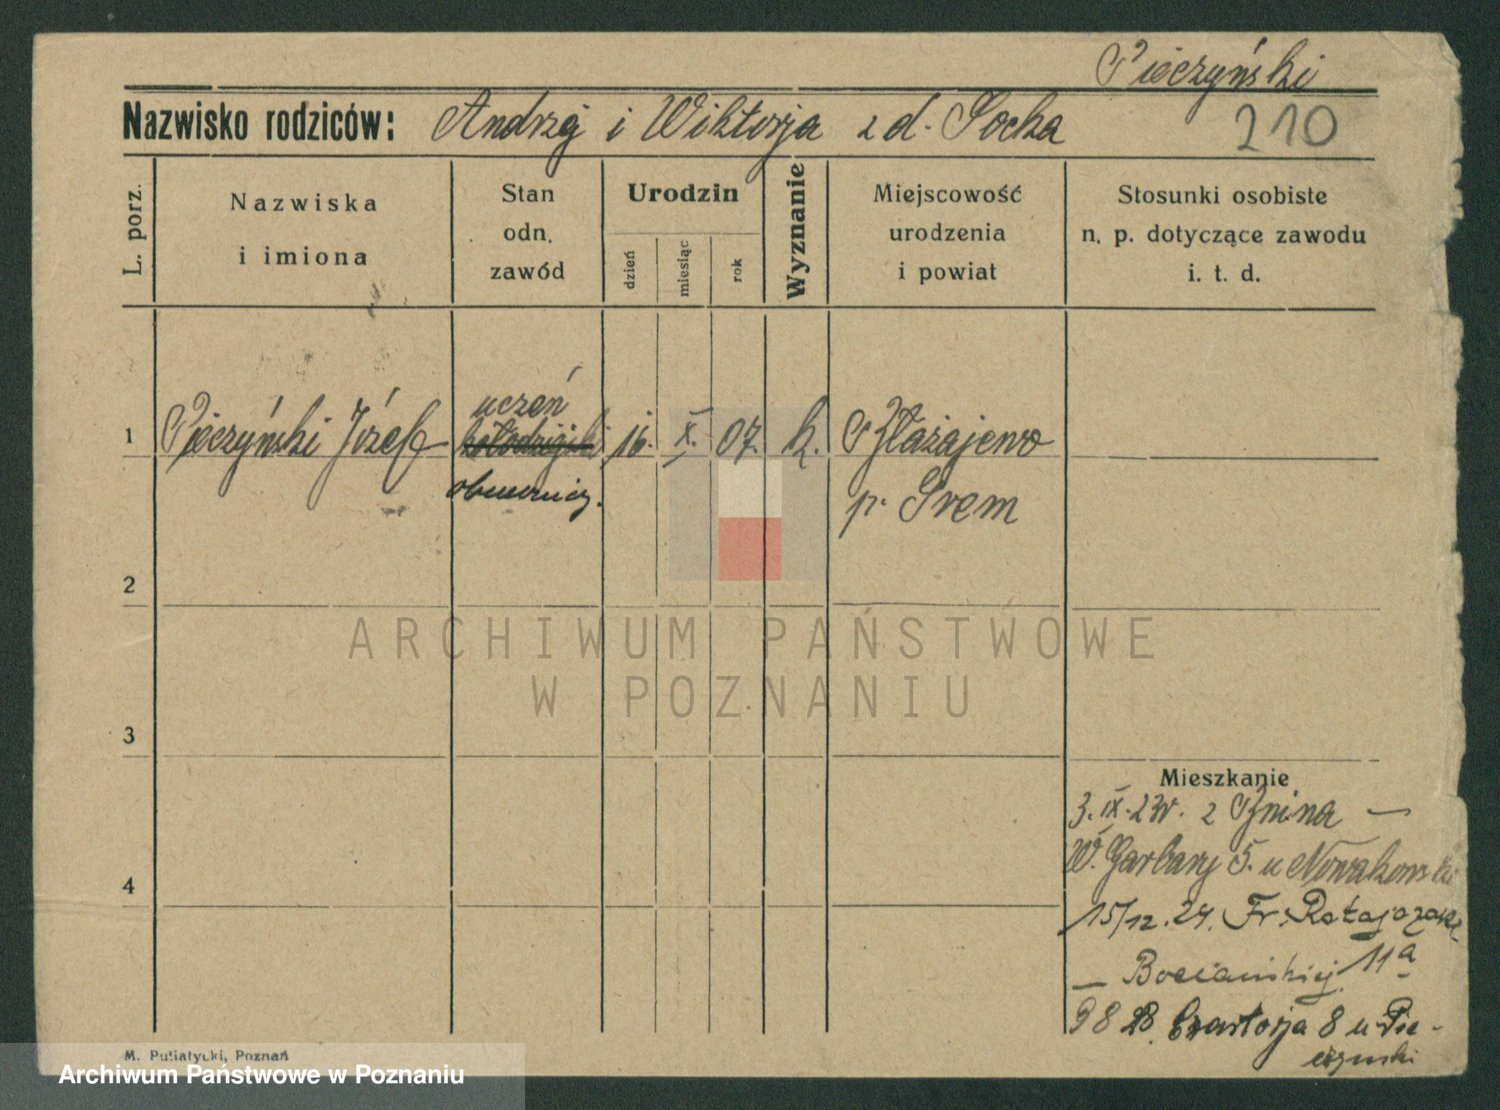 Pieczyński
Nazwisko rodziców: Andrzej i Wiktorja z d. Socha
210
L. porz.
Nazwiska
i imiona
Stan
odn.
zawód
Urodzin
dzień
miesiąc
rok
Wyznanie
Miejscowość
urodzenia
i powiat
Stosunki osobiste
n. p. dotyczące zawodu
i. t. d.
uczeń
1 Pieczyński Józef kołodziejski 16. X. 07. k.
p. Śrem
2
3
Mieszkanie
3. IX. 23r. z Żnina —
W. Garbary 5. u Nowakowski
4
15/12. 24. Fr. Ratajczaka
— Bociańskiej 11a
9 8 28. Czartorja 8 u Pie-
czyński
M. Putiatycki, Poznań
ARCHIWUM PAŃSTWOWE
W POZNANIU
Archiwum Państwowe w Poznaniu